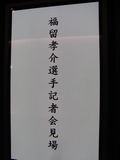 福留孝介選手記者会見場